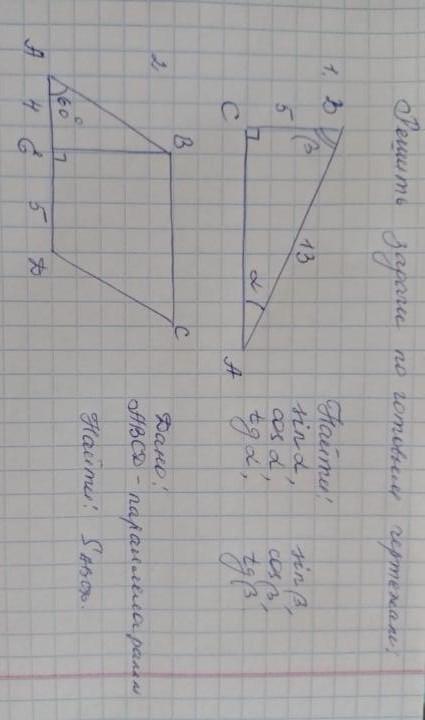 Решить задачи по готовым чертежам:
1.
В
β
5
13
С
α
А
Найти:
sin α, sin β,
cos α, cos β,
tg α, tg β
2.
В
С
60°
А 4 Е 5 D
Дано:
ABCD - параллелограмм
Найти: S ABCD.